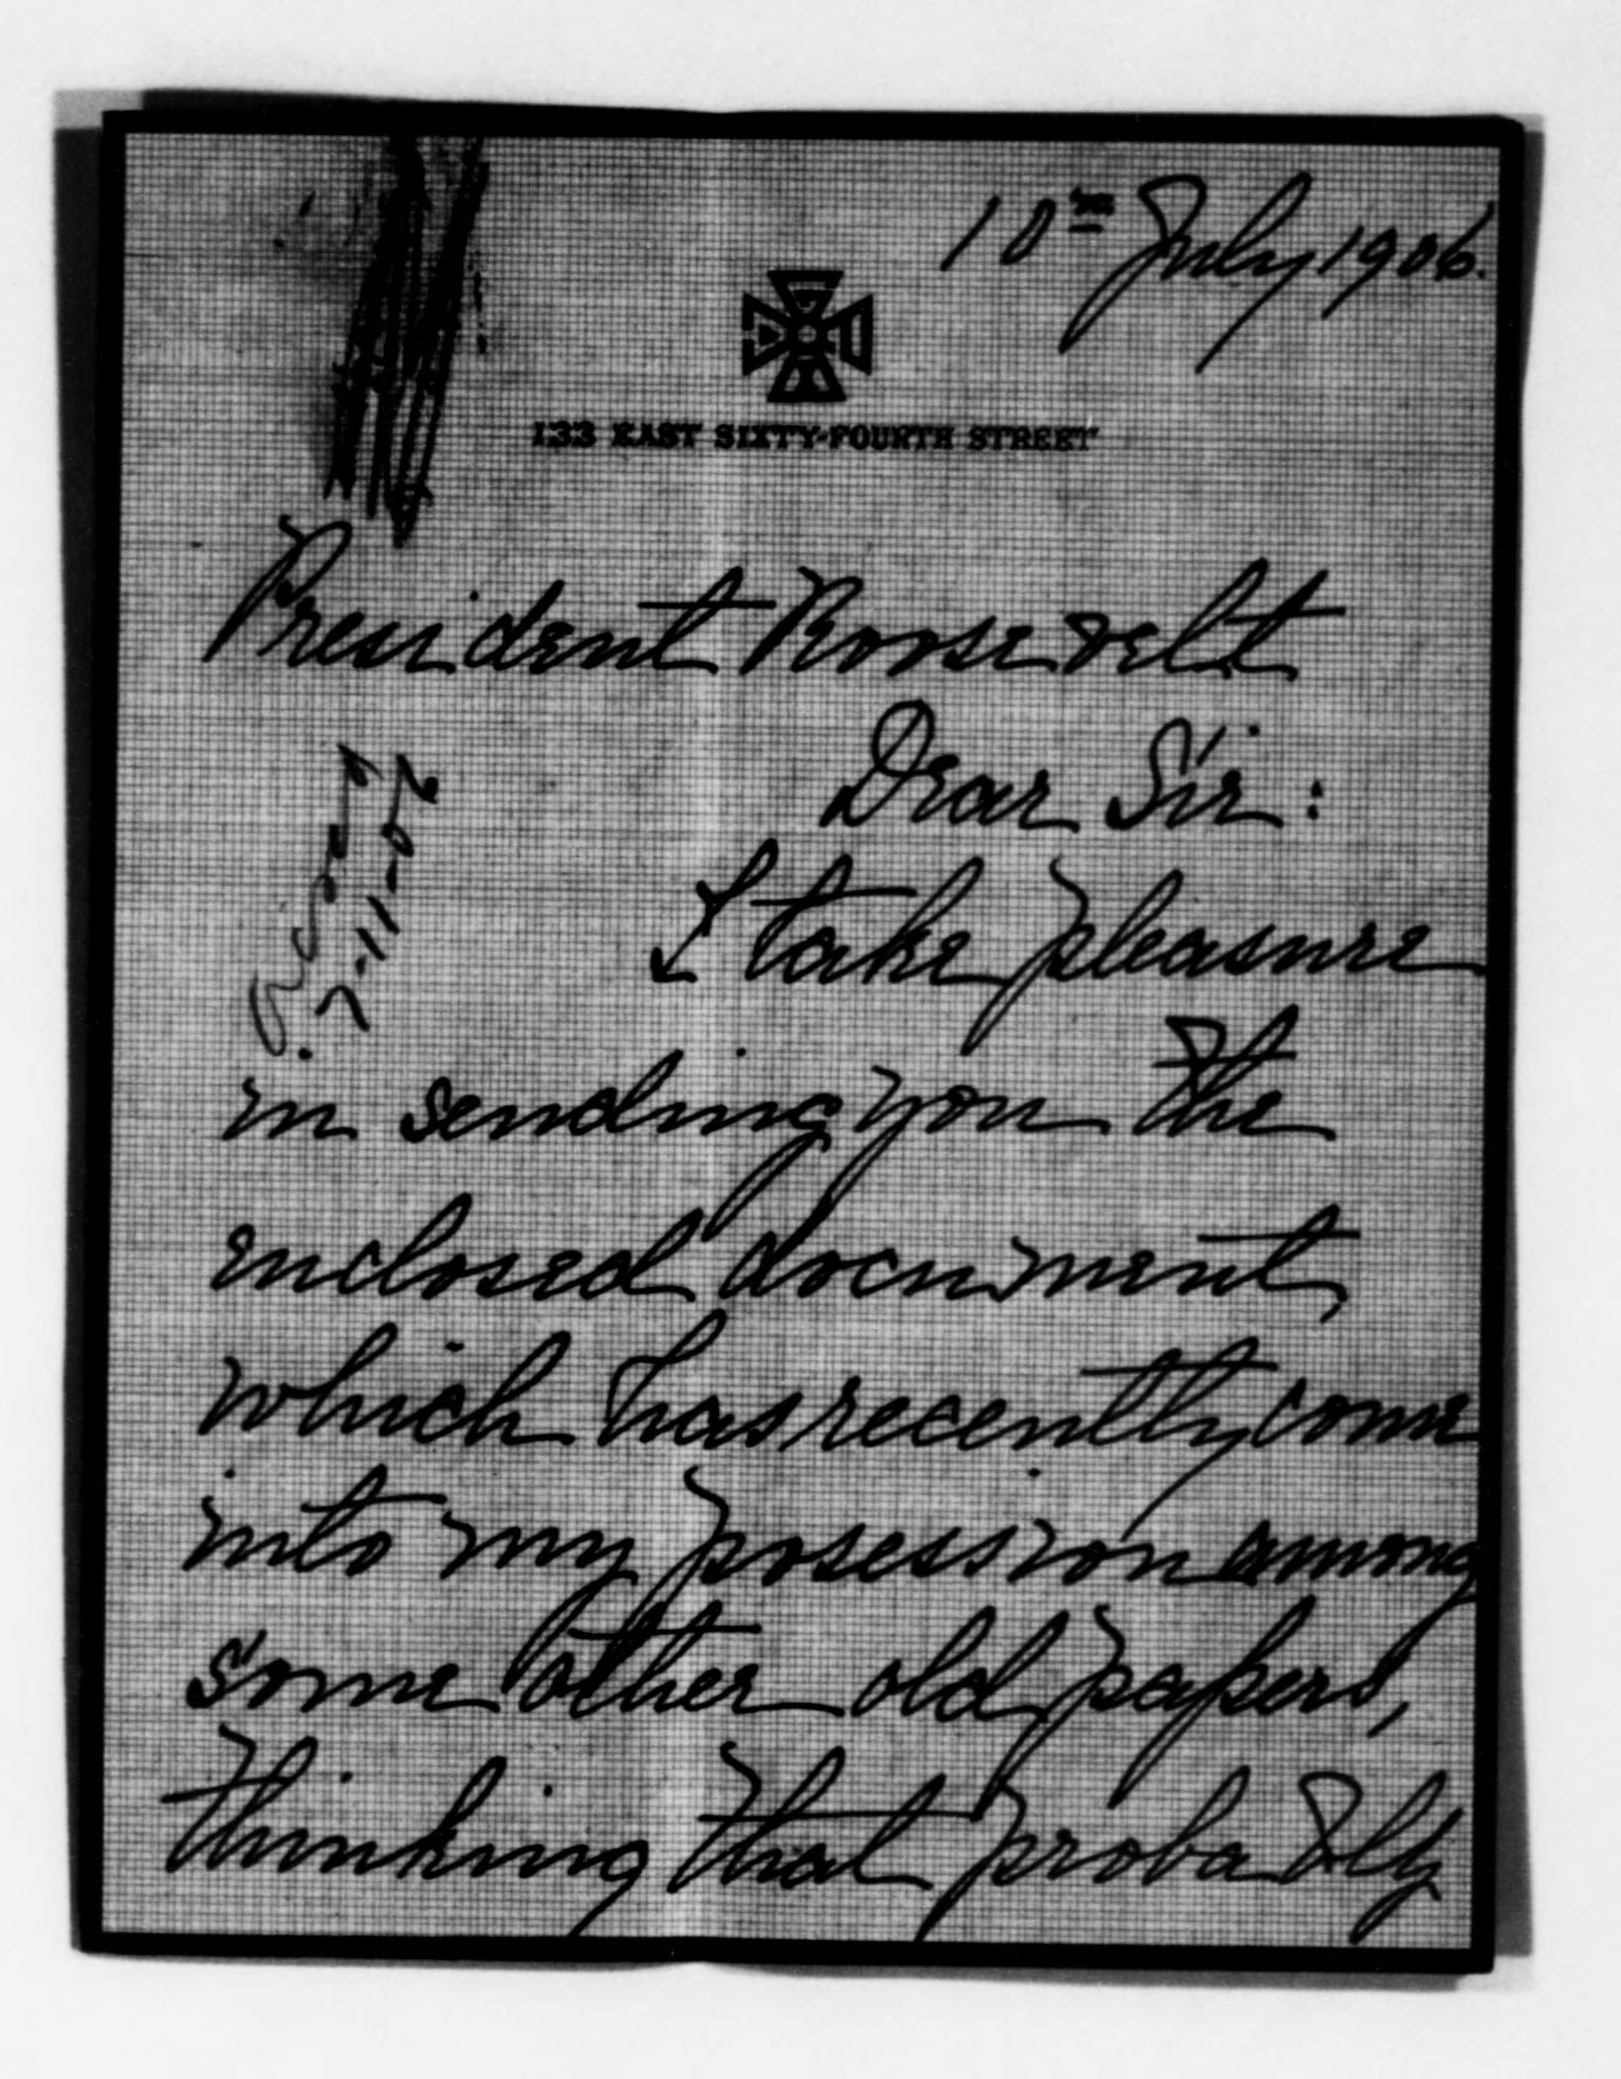 10th July 1906.
133 EAST SIXTY-FOURTH STREET
President Roosevelt
Dear Sir:
I take pleasure
Ackd
7-11-06
in sending you the
enclosed document,
which has recently come
into my posession among
some other old papers,
thinking that probably